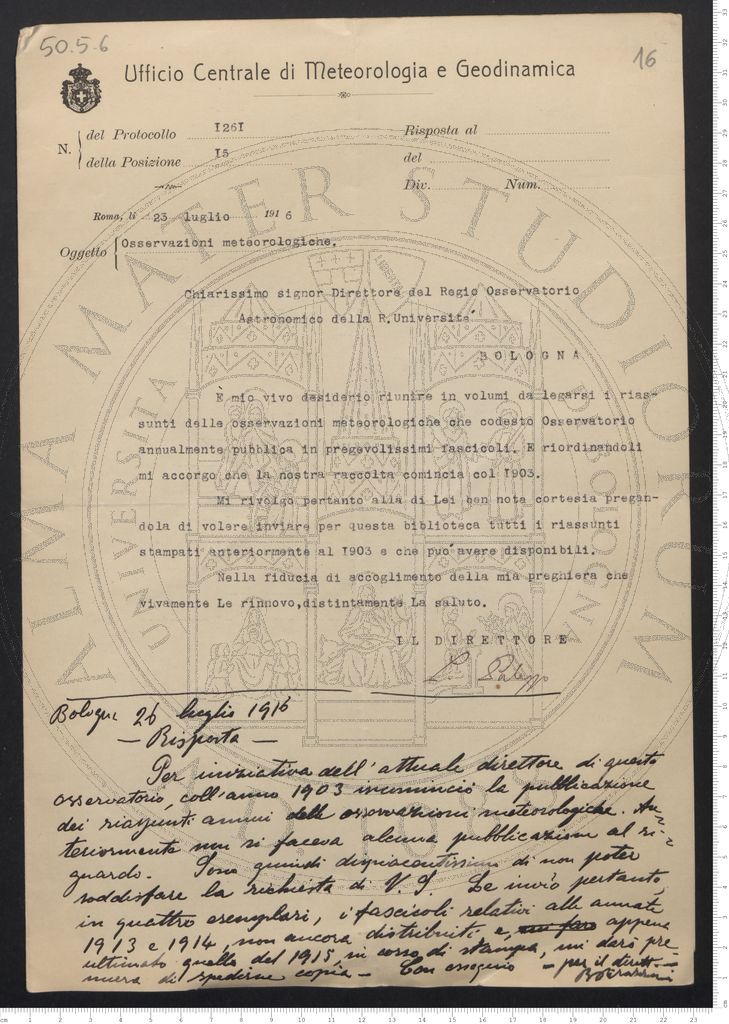 50.5.6
16
Ufficio Centrale di Meteorologia e Geodinamica
N. del Protocollo 1261
della Posizione 15
Risposta al
del
Div. Num.
Roma, li 23 luglio 1916
Oggetto Osservazioni meteorologiche.
Chiarissimo signor Direttore del Regio Osservatorio
Astronomico della R.Universita´
BOLOGNA
È mio vivo desiderio riunire in volumi da legarsi i rias-
sunti delle osservazioni meteorologiche che codesto Osservatorio
annualmente pubblica in pregevolissimi fascicoli. E riordinandoli
mi accorgo che la nostra raccolta comincia col 1903.
Mi rivolgo pertanto alla di Lei ben nota cortesia pregan-
dola di volere inviare per questa biblioteca tutti i riassunti
stampati anteriormente al 1903 e che puo´avere disponibili.
Nella fiducia di accoglimento della mia preghiera che
vivamente Le rinnovo,distintamente La saluto.
IL DIRETTORE
L. Palazzo
Bologna 26 luglio 1916
— Risposta —
Per iniziativa dell'attuale direttore di questo
osservatorio, coll'anno 1903 incominciò la pubblicazione
dei riassunti annui delle osservazioni meteorologiche. An-
teriormente non si faceva alcuna pubblicazione al ri-
guardo. Sono quindi dispiacentissimo di non poter
soddisfare la richiesta di V. S. Le invio pertanto,
in quattro esemplari, i fascicoli relativi alle annate
1913 e 1914, non ancora distribuiti e, appena
ultimato quello del 1915, in corso di stampa, mi darò pre-
mura di spedirne copia — Con ossequio — per il dirett—
ALMA MATER STUDIORUM
UNIVERSITA DI BOLOGNA
LIBERTAS